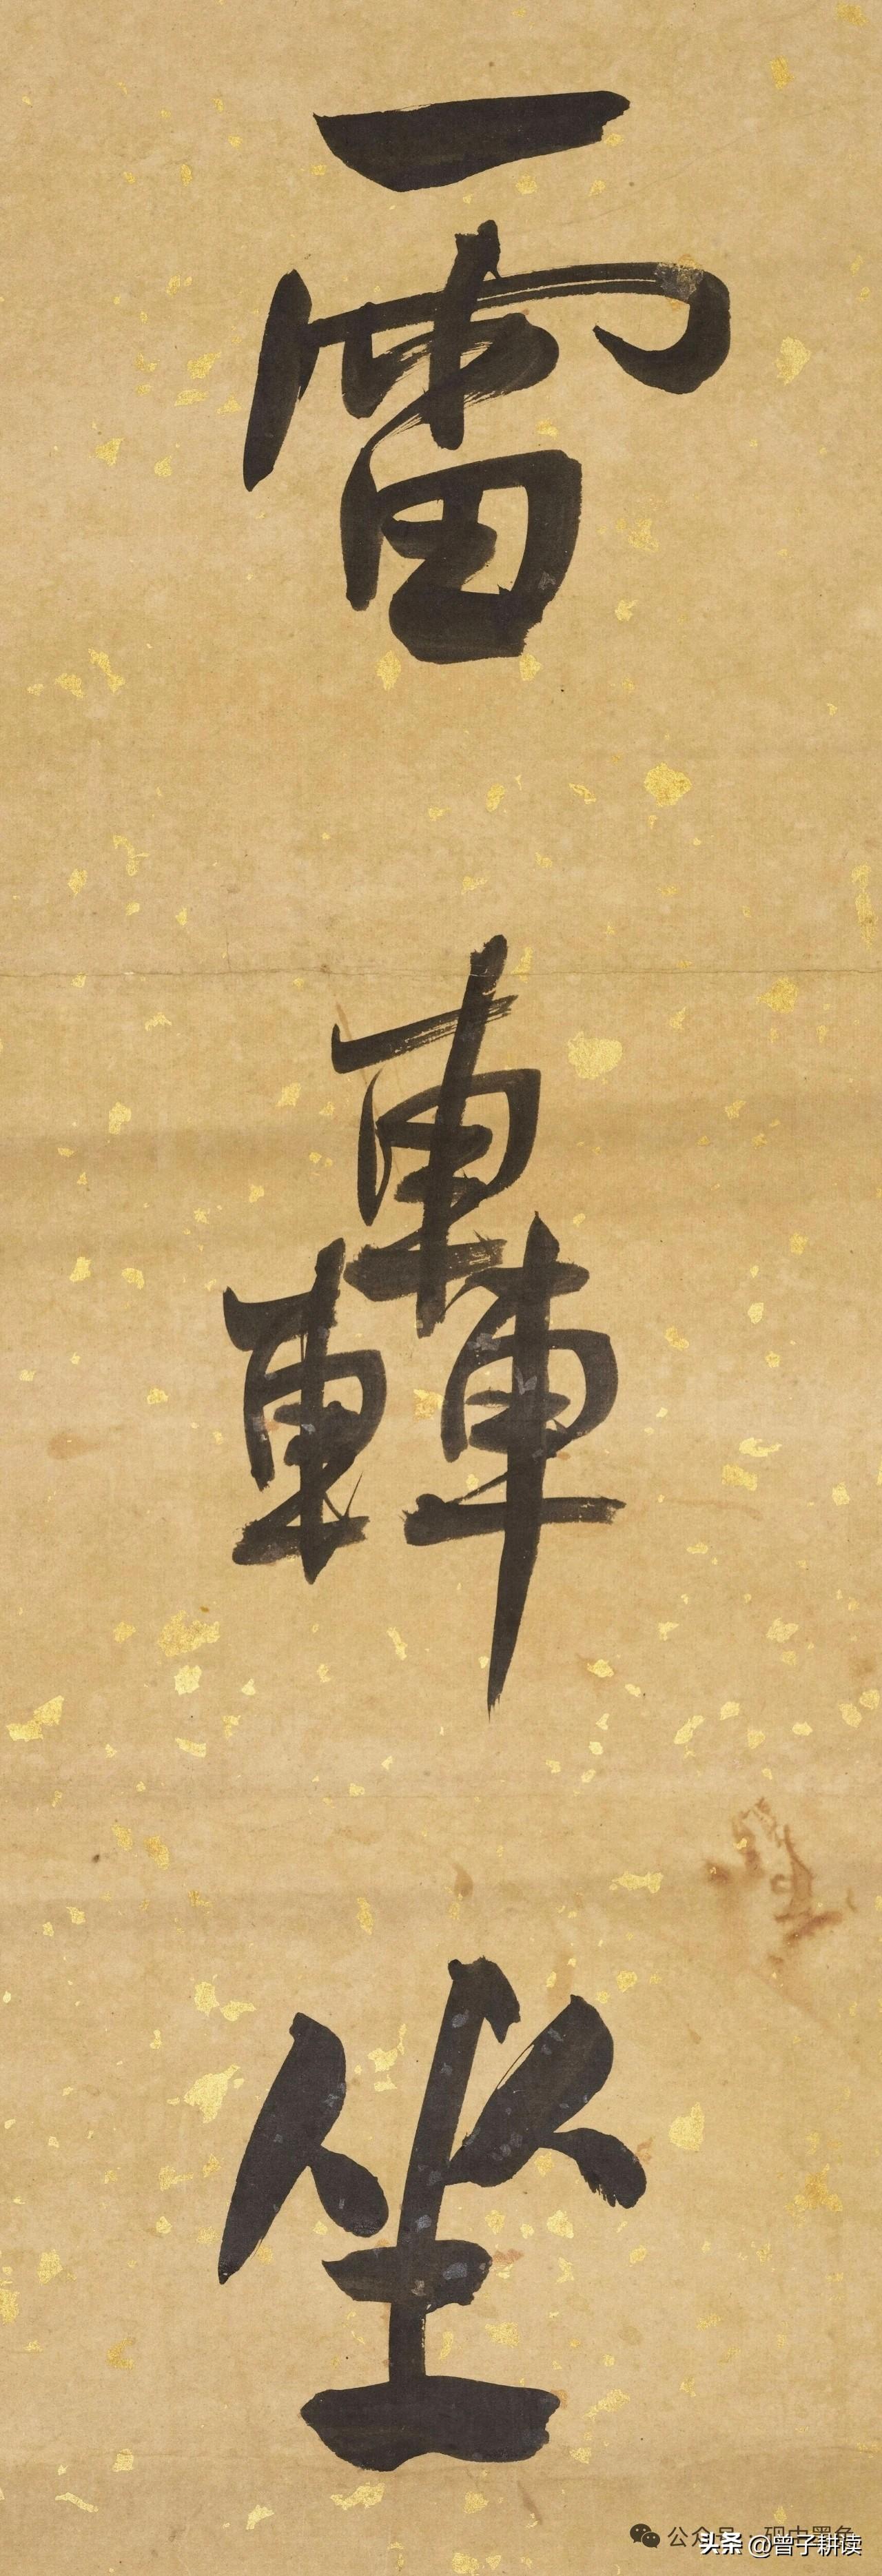 雷轟坐
公众号·砚中墨鱼
头条 @曾子耕读